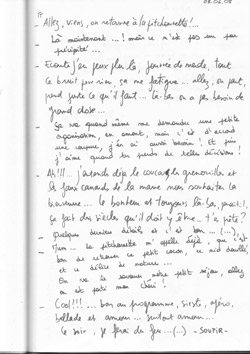 08.06.08
17
- Allez, viens, on retourne à la pitchounette!...
- Là maintenant ...! mais ce n'est pas un peu précipité...
- Ecoute j'en peux plus là, journée de merde, tout ce bruit pour rien, ça me fatigue... allez, on part, prend juste ce qu'il faut... là-bas on a pas besoin de grand chose...
- ça va quand même me demander une petite organisation, en amont, mais c'est d'accord
une coupure, j'en ai aussi besoin! et puis
j'aime quand tu prends de telles décisions!
- Ah!!!... j'entends déjà le coucou, la grenouille et
la bienvenue... le bonheur et toujours là-bas,
ça fait des siècles qu'il doit y être... t'es prête?
- Quelques derniers détails et c'est bon ... (...)
- ... la pitchounette m'appelle déjà, que c'est
bon de retrouver ce petit cocon, ce nid
et ce délice de nature...
On va le savourer notre petit séjour, allez
on est parti mon chou!
- Cool!!! ... bon au programme, sieste, apéro,
ballade et amour... surtout amour...
ce soir, je ferai du feu ...(...) - SOUPIR -